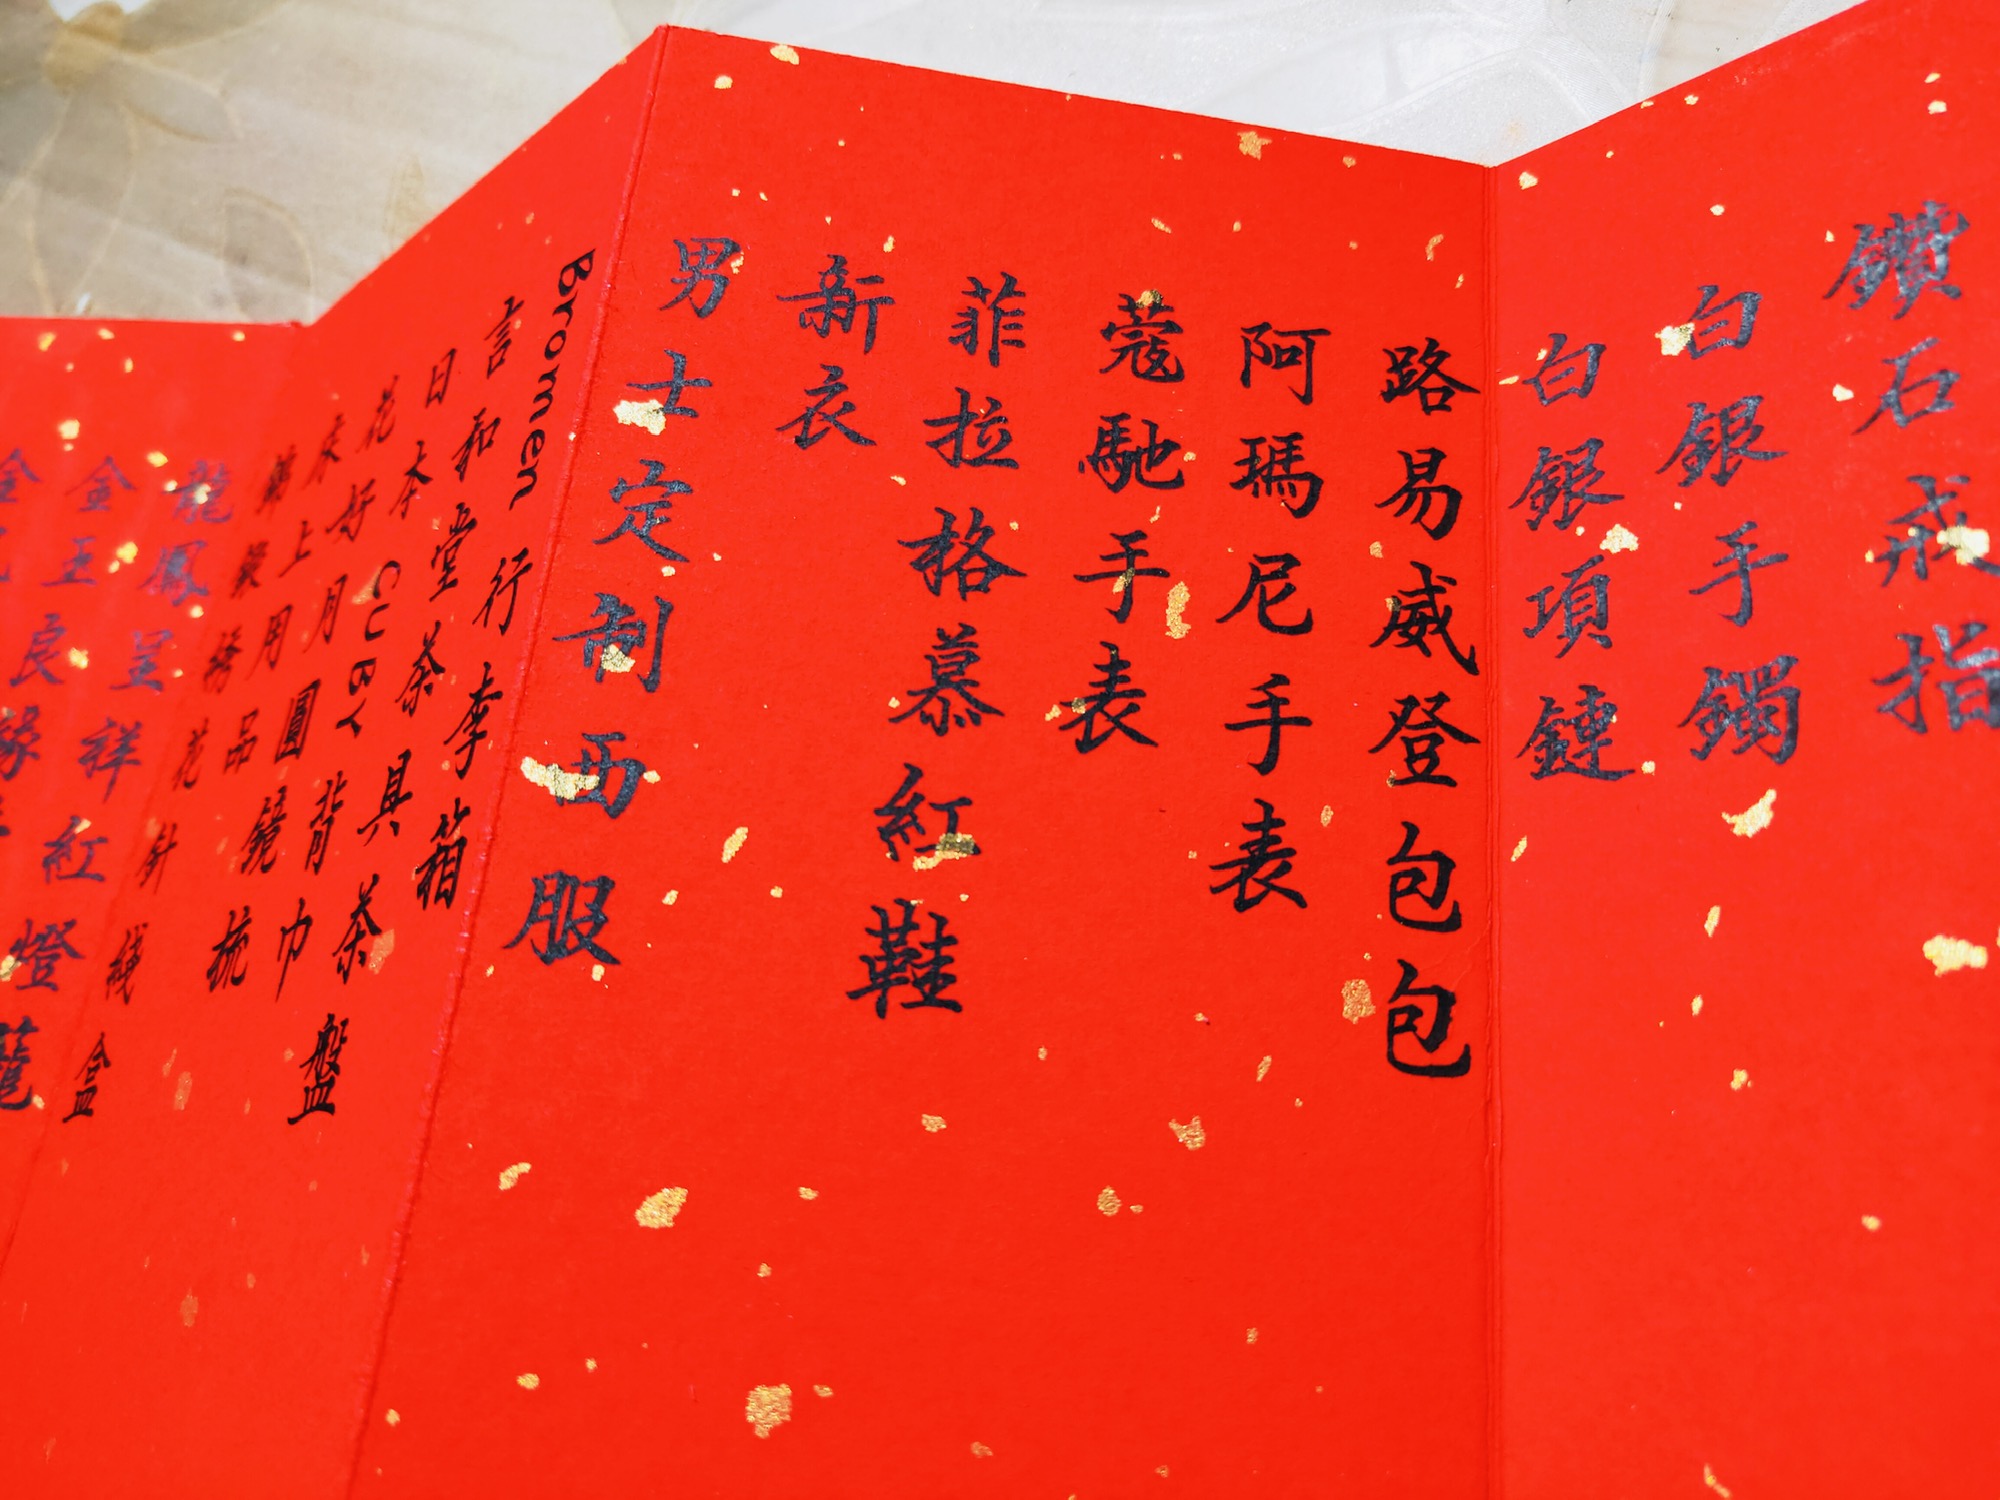 鑽石戒指
白銀手鐲
白銀項鏈
路易威登包包
阿瑪尼手表
蔻馳手表
菲拉格慕紅鞋
新衣
男士定制西服
Bromen 行李箱
言和堂茶具茶盤
日本 CUBY 背巾
花好月圓鏡梳
床上用品
錦緞綉花針綫盒
龍鳳呈祥紅燈籠
金玉良緣
金